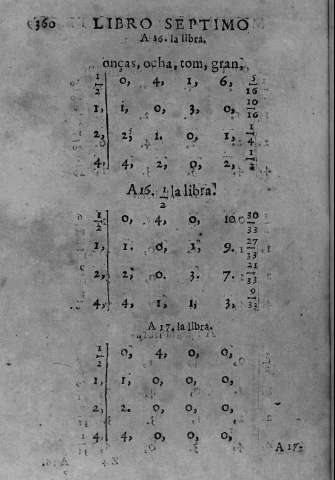 360 LIBRO SEPTIMO
A 16. la libra.
onças, ocha, tom, gran,
1/2 0, 4, 1, 6, 5/16
1, 1, 0, 3, 0, 10/16
2, 2, 1. 0, 1, 1/4
4, 4, 2, 0, 2, 1/2
A 16. 1/2 la libra.
1/2 0, 4, 0, 10. 30/33
1, 1. 0, 1, 9. 27/33
2, 2, 0. 3. 7. 21/33
4, 4, 1, 1, 3, 9/33
A 17. la libra.
1/2 0, 4, 0, 0,
1, 1, 0, 0, 0,
2, 2. 0, 0, 0,
4, 4, 0, 0, 0,
A 17.